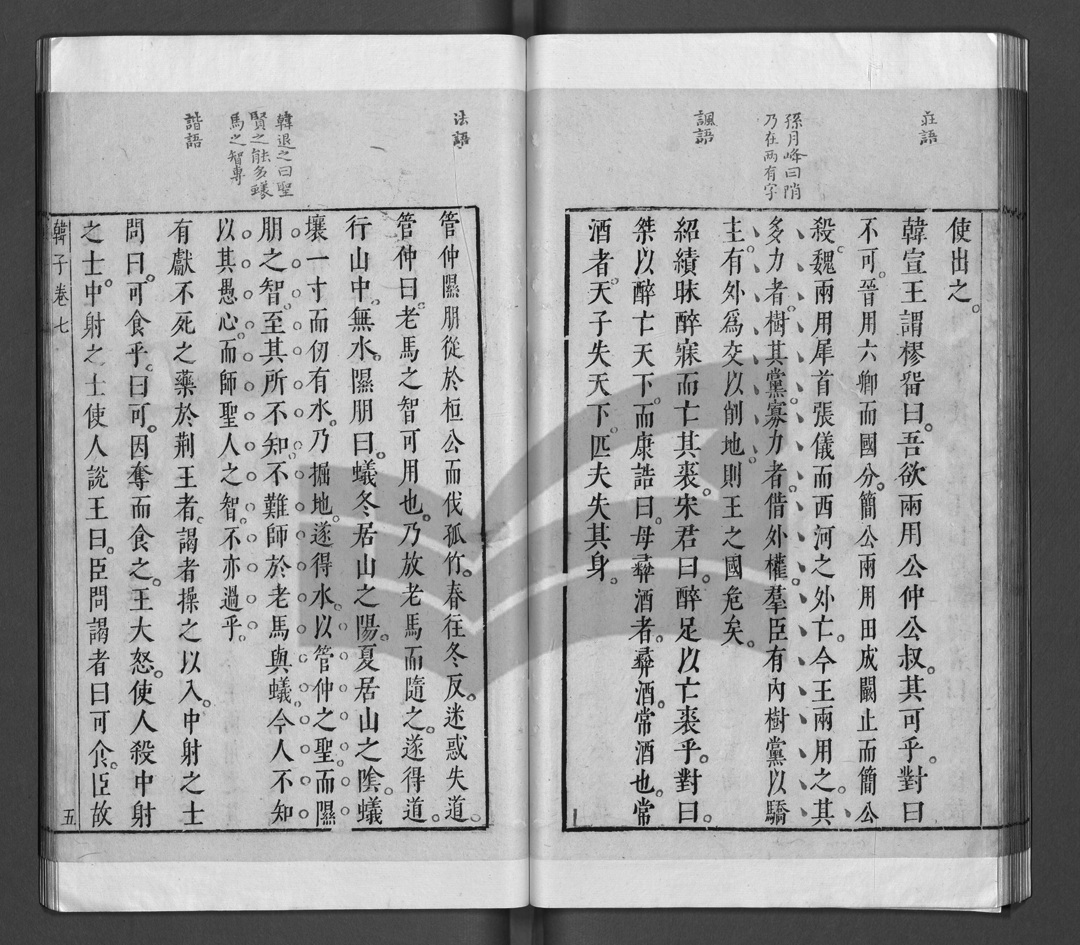 莊語
孫月峰曰陗
乃在兩有字
諷語
使出之。
韓宣王謂樛㽞曰。吾欲兩用公仲公叔。其可乎。對曰
不可。晉用六卿而國分。簡公兩用田成闞止而簡公
殺。魏兩用犀首張儀而西河之外亡。今王兩用之。其
多力者。樹其黨。寡力者。借外權。羣臣有內樹黨以驕
主。有外爲交以削地。則王之國危矣。
紹績昧醉寐而亡其裘。宋君曰。醉足以亡裘乎。對曰。
桀以醉亡天下。而康誥曰。毋彝酒者。彝酒。常酒也。常
酒者。天子失天下。匹夫失其身。
法語
韓退之曰聖
賢之能多蟻
馬之智專
諧語
管仲隰朋從於桓公而伐孤竹。春往冬反。迷惑失道。
管仲曰。老馬之智可用也。乃放老馬而隨之。遂得道。
行山中。無水。隰朋曰。蟻冬居山之陽。夏居山之陰。蟻
壤一寸而仞有水。乃掘地。遂得水。以管仲之聖而隰
朋之智。至其所不知。不難師於老馬與蟻。今人不知
以其愚心。而師聖人之智。不亦過乎。
有獻不死之藥於荆王者。謁者操之以入。中射之士
問曰。可食乎。曰可。因奪而食之。王大怒。使人殺中射
之士。中射之士使人說王曰。臣問謁者曰可食。臣故
韓子卷七
五